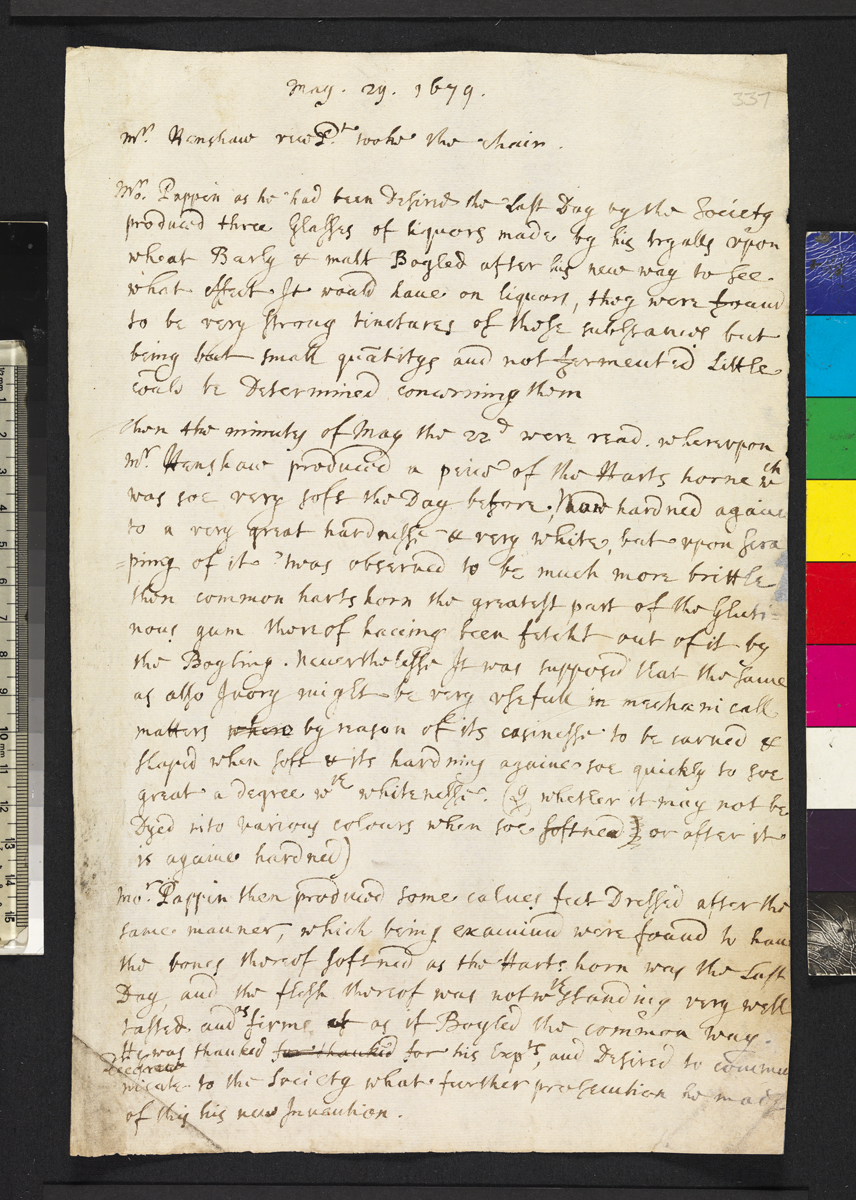 May. 29. 1679.
337
Mr. Henshaw vice Pt. tooke the chair.
Mr. Pappin as he had been Desired the Last Day by the Society
produced three Glasses of liquors made by his tryalls upon
wheat Barly & malt Boyled after his new way to see
what effect It would have on liquors, they were found
to be very strong tinctures of those substances but
being but small quātitys and not fermented Little
could be Determined concerning them
then the minutes of May the 22d were read. whereupon
Mr. Henshaw produced a peice of the Harts horne wch
was soe very soft the Day before, now hardned againe
to a very great hardnesse & very white, but upon scra
=ping of it 'twas observed to be much more brittle
then common harts horn the greatest part of the Gluti-
nous gum thereof haveing been fetcht out of it by
the Boyling. Neverthelesse It was supposed that the same
as also Ivory might be very usefull in mechanicall
matters where by reason of its easinesse to be carved &
shaped when soft & its hardning againe soe quickly to soe
great a degree wth whitenesse. (Q whether it may not be
Dyed into various colours when soe softned or after it
is againe hardned)
Mor. Pappin then produced some calves feet Dressed after the
same manner, which being examined were found to have
the bones thereof softned as the Harts horn was the Last
Day, and the flesh thereof was notwthstanding very well
tasted and as firme as if Boyled the common way.
He was thanked for thanked for his Expts, and Desired to commu
nicate to the Society what further prosecution he made
of this his new Invention.